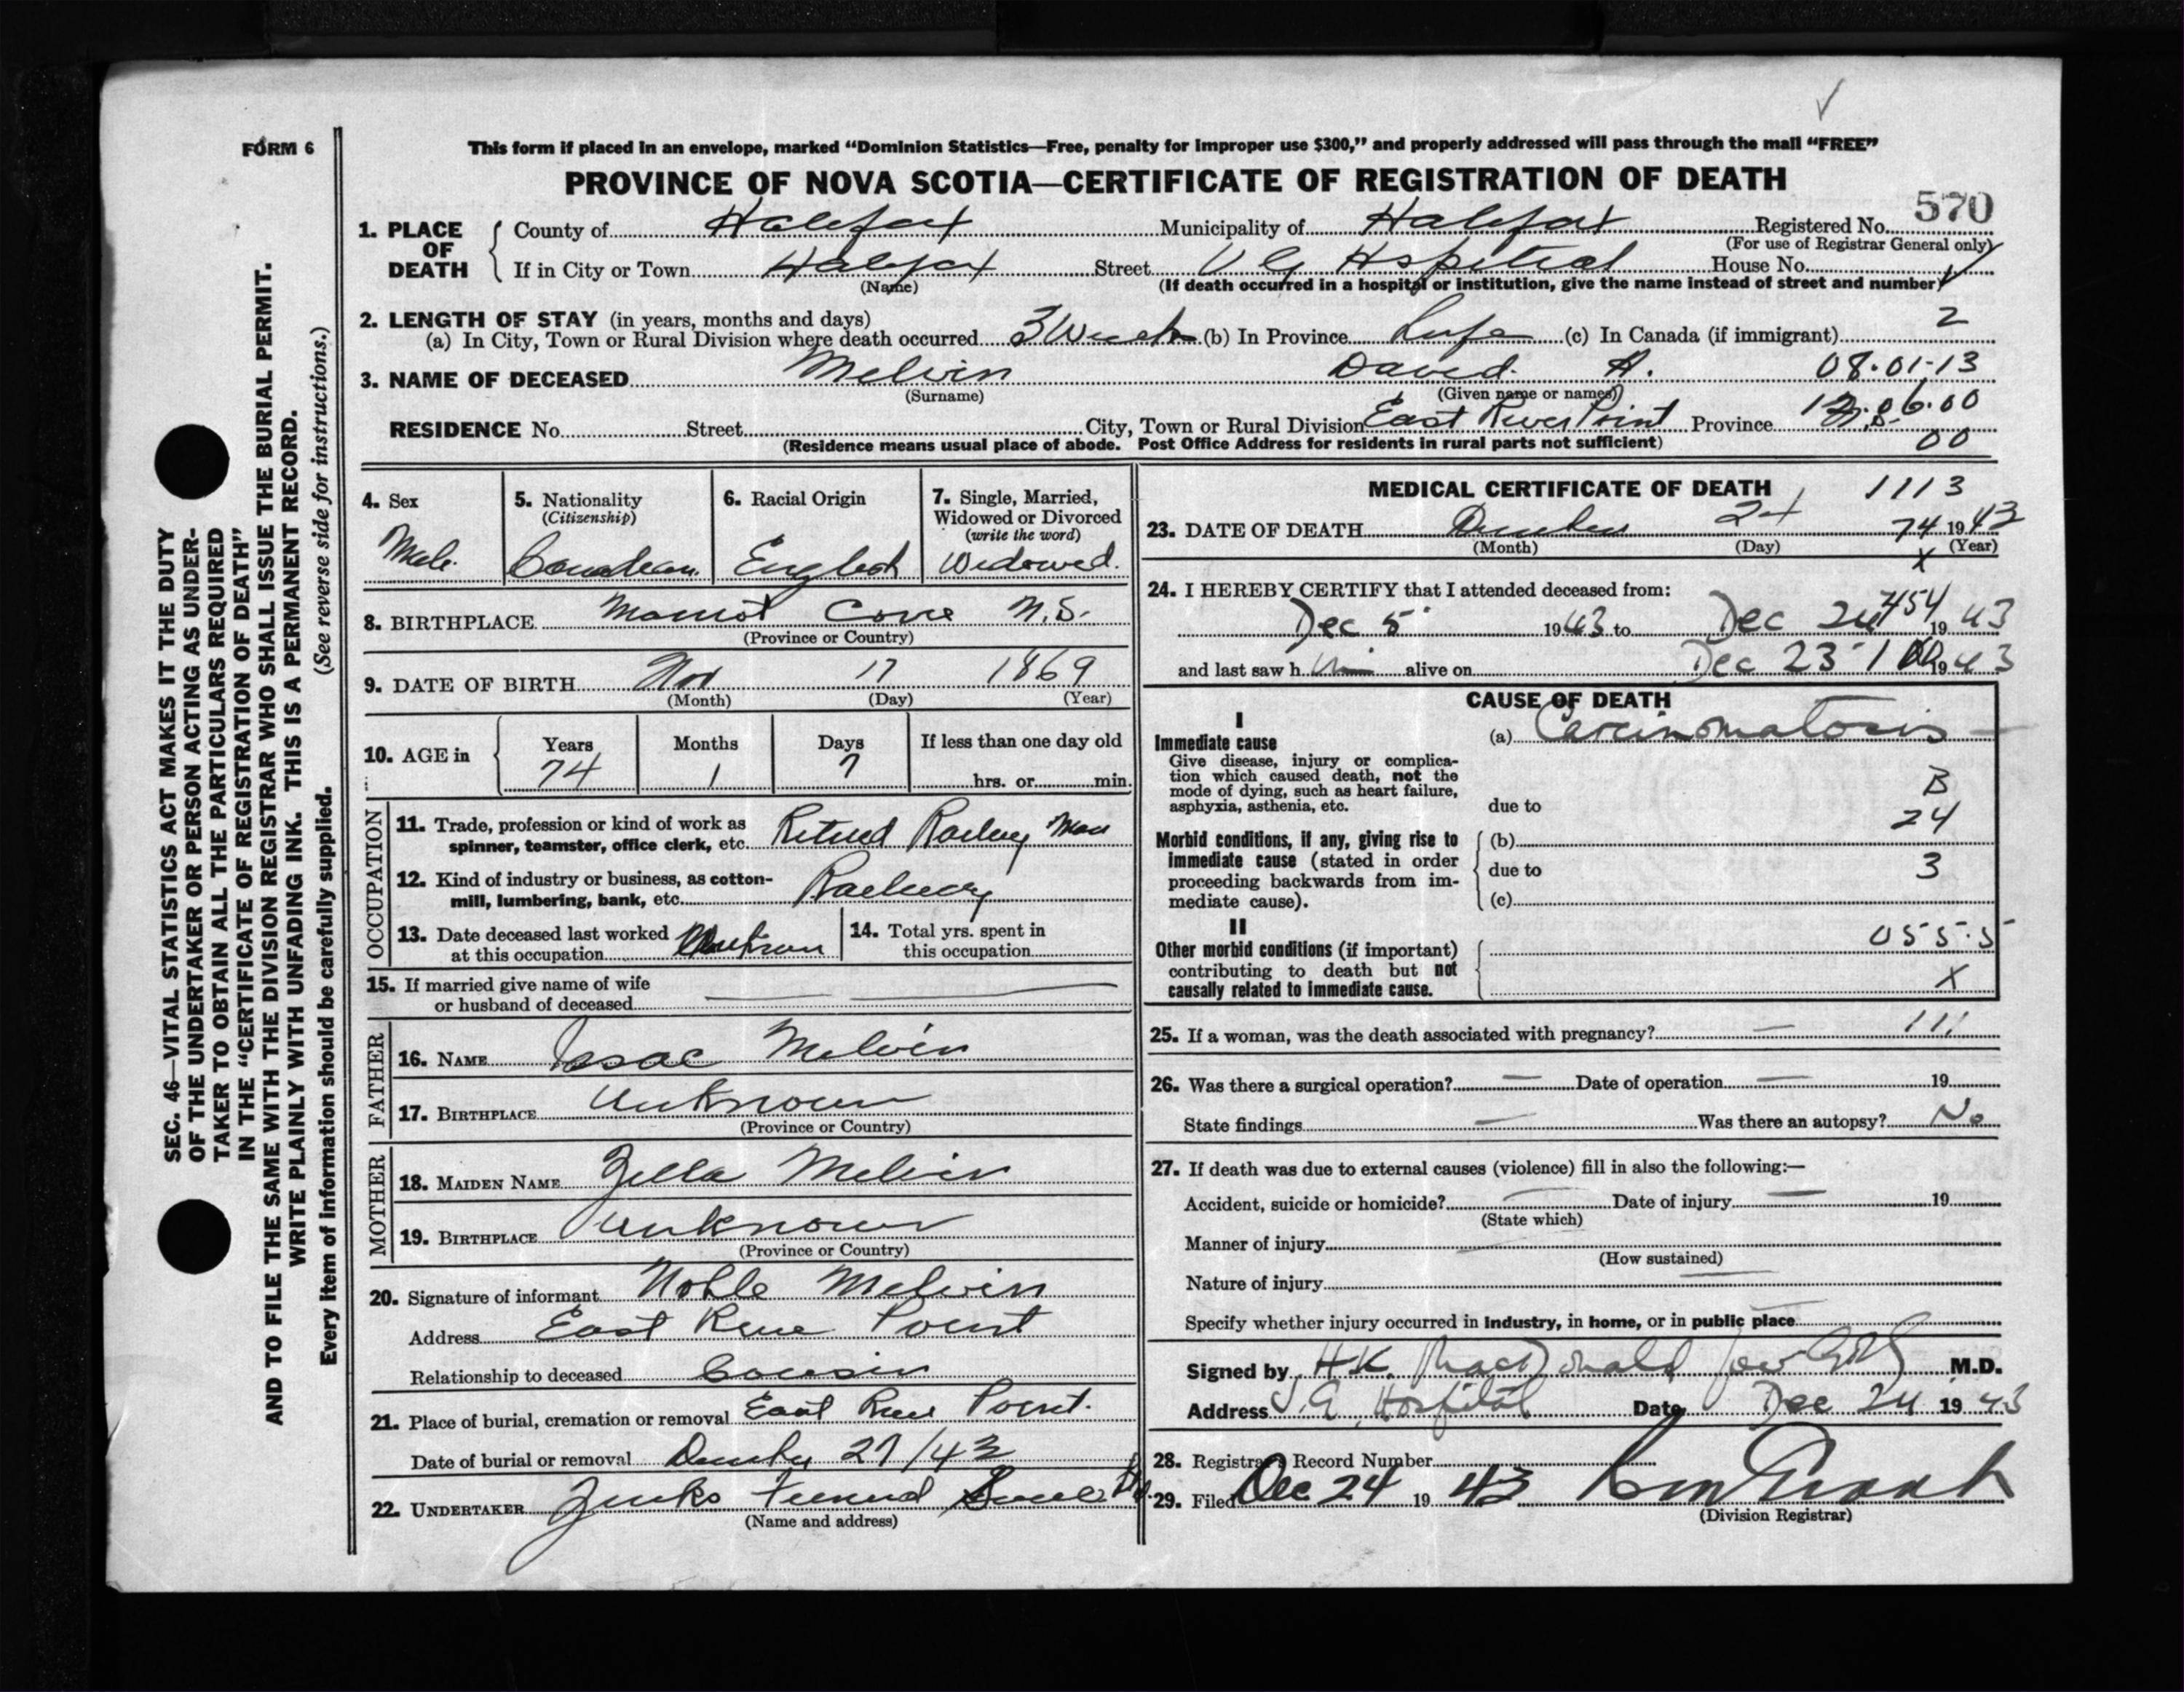 FORM 6
This form if placed in an envelope, marked "Dominion Statistics—Free, penalty for improper use $300," and properly addressed will pass through the mail "FREE"
PROVINCE OF NOVA SCOTIA—CERTIFICATE OF REGISTRATION OF DEATH
570
1. PLACE OF DEATH County of Halifax Municipality of Halifax Registered No.
(For use of Registrar General only)
If in City or Town Halifax Street V G Hspital House No.
(Name) (If death occurred in a hospital or institution, give the name instead of street and number)
2. LENGTH OF STAY (in years, months and days) 2
(a) In City, Town or Rural Division where death occurred 3 Weeks (b) In Province Life (c) In Canada (if immigrant)
3. NAME OF DECEASED Melvin David H. 08.01-13
(Surname) (Given name or names)
RESIDENCE No. Street City, Town or Rural Division East River Point Province N.S. 12.06.00
(Residence means usual place of abode. Post Office Address for residents in rural parts not sufficient) 00
4. Sex Male
5. Nationality (Citizenship) Canadian
6. Racial Origin English
7. Single, Married, Widowed or Divorced (write the word) Widowed.
8. BIRTHPLACE Cove N.S.
(Province or Country)
9. DATE OF BIRTH Nov 17 1869
(Month) (Day) (Year)
10. AGE in Years 74 Months 1 Days 7 If less than one day old
hrs. or min.
OCCUPATION
11. Trade, profession or kind of work as
spinner, teamster, office clerk, etc. Retired Railway Man
12. Kind of industry or business, as cotton-
mill, lumbering, bank, etc. Railway
13. Date deceased last worked
at this occupation
14. Total yrs. spent in
this occupation
15. If married give name of wife
or husband of deceased
FATHER
16. NAME Isac Melvin
17. BIRTHPLACE Unknown
(Province or Country)
MOTHER
18. MAIDEN NAME Zella Melvin
19. BIRTHPLACE Unknown
(Province or Country)
20. Signature of informant Noble Melvin
Address East River Point
Relationship to deceased Cousin
21. Place of burial, cremation or removal East River Point.
Date of burial or removal December 27/43
22. UNDERTAKER Funeral
(Name and address)
MEDICAL CERTIFICATE OF DEATH 1113
23. DATE OF DEATH December 24 1943
74
(Month) (Day) (Year)
X
24. I HEREBY CERTIFY that I attended deceased from:
454
Dec 5 1943 to Dec 24 1943
and last saw him alive on Dec 23 1943
CAUSE OF DEATH
I
Immediate cause (a) Carcinomatosis
Give disease, injury or complica-
tion which caused death, not the B
mode of dying, such as heart failure,
asphyxia, asthenia, etc. due to
24
Morbid conditions, if any, giving rise to (b)
immediate cause (stated in order due to 3
proceeding backwards from im-
mediate cause). (c)
II
Other morbid conditions (if important) 055.5
contributing to death but not
causally related to immediate cause. X
25. If a woman, was the death associated with pregnancy? — 111
26. Was there a surgical operation? — Date of operation — 19
State findings — Was there an autopsy? No
27. If death was due to external causes (violence) fill in also the following:—
Accident, suicide or homicide? — Date of injury — 19
(State which)
Manner of injury
(How sustained)
Nature of injury
Specify whether injury occurred in industry, in home, or in public place
Signed by H.K. MacDonald M.D.
Address V.G. Hospital Date Dec 24 1943
28. Registrar's Record Number
29. Filed Dec 24 1943
(Division Registrar)
SEC. 46—VITAL STATISTICS ACT MAKES IT THE DUTY
OF THE UNDERTAKER OR PERSON ACTING AS UNDER-
TAKER TO OBTAIN ALL THE PARTICULARS REQUIRED
IN THE "CERTIFICATE OF REGISTRATION OF DEATH"
AND TO FILE THE SAME WITH THE DIVISION REGISTRAR WHO SHALL ISSUE THE BURIAL PERMIT.
WRITE PLAINLY WITH UNFADING INK. THIS IS A PERMANENT RECORD.
Every item of information should be carefully supplied. (See reverse side for instructions.)